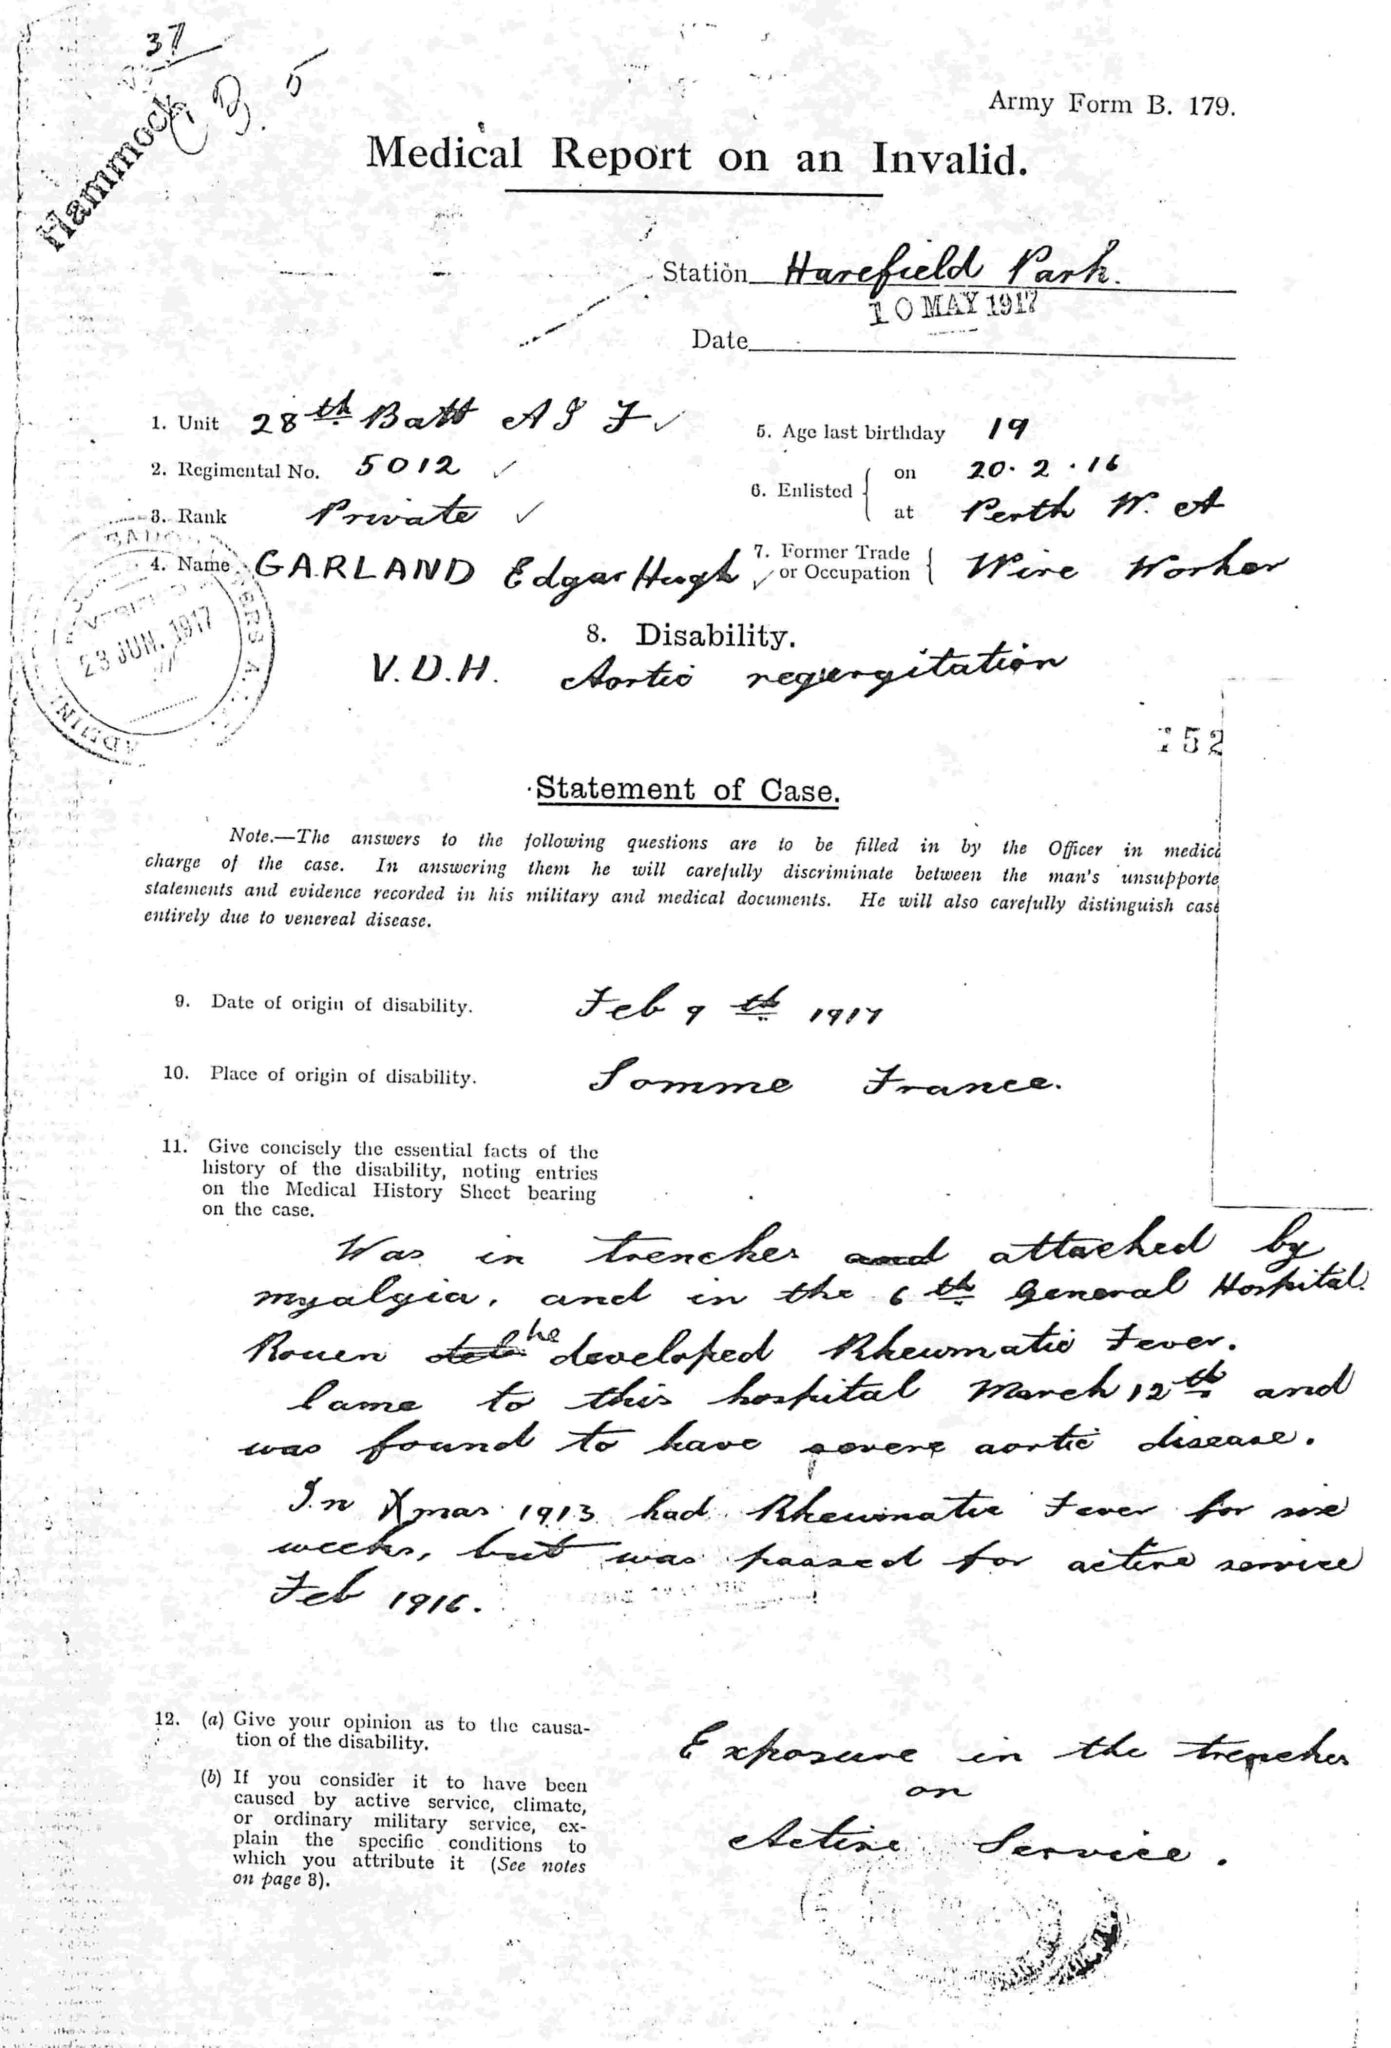 37
C B. 5
Hammock
Army Form B. 179.
Medical Report on an Invalid.
Station Harefield Park.
10 MAY 1917
Date
1. Unit 28th Batt A I F ✓
2. Regimental No. 5012 ✓
3. Rank Private ✓
4. Name GARLAND Edgar Hugh ✓
5. Age last birthday 19
6. Enlisted { on 20.2.16
at Perth W. A
7. Former Trade or Occupation { Wire Worker
23 JUN. 1917
8. Disability.
V.D.H. Aortic regurgitation
52
Statement of Case.
Note.—The answers to the following questions are to be filled in by the Officer in medic
charge of the case. In answering them he will carefully discriminate between the man's unsupporte
statements and evidence recorded in his military and medical documents. He will also carefully distinguish case
entirely due to venereal disease.
9. Date of origin of disability. Feb 9th 1917
10. Place of origin of disability. Somme France.
11. Give concisely the essential facts of the
history of the disability, noting entries
on the Medical History Sheet bearing
on the case.
Was in trenches and attached by
myalgia, and in the 6th General Hospital
Rouen he developed Rheumatic Fever.
Came to this hospital March 12th and
was found to have severe aortic disease.
In Xmas 1913 had Rheumatic Fever for
weeks, but was passed for active service
Feb 1916.
12. (a) Give your opinion as to the causa-
tion of the disability.
(b) If you consider it to have been
caused by active service, climate,
or ordinary military service, ex-
plain the specific conditions to
which you attribute it (See notes
on page 8).
Exposure in the trenches
on
Active Service.